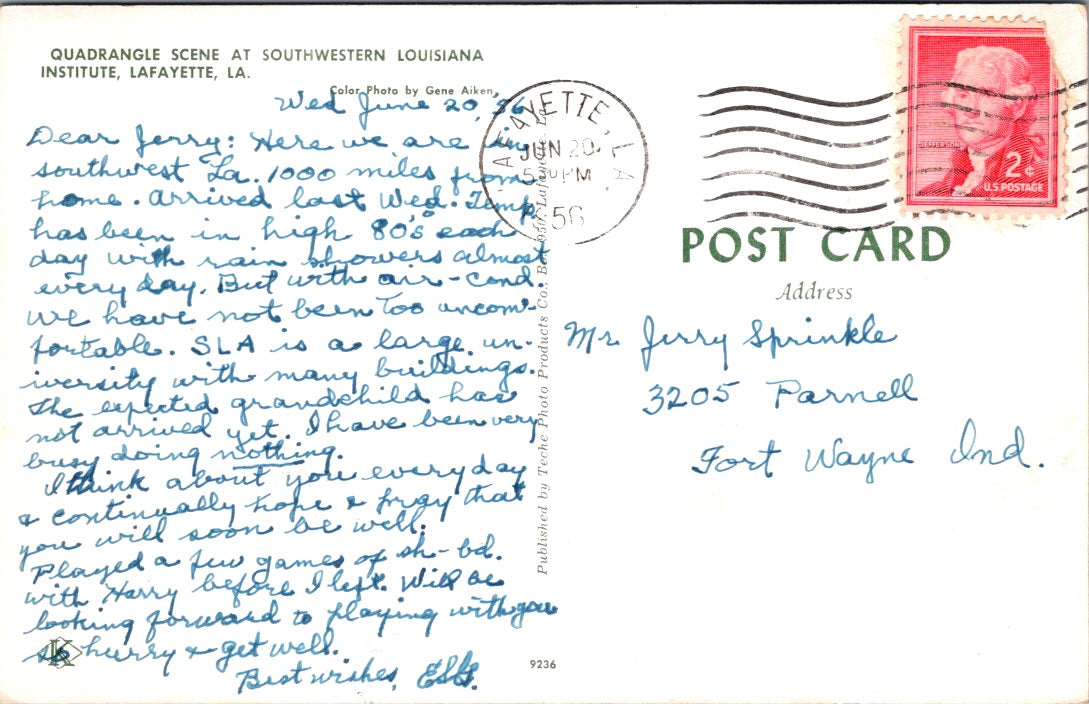 QUADRANGLE SCENE AT SOUTHWESTERN LOUISIANA
INSTITUTE, LAFAYETTE, LA.
Color Photo by Gene Aiken
Wed June 20, '56
Dear Jerry: Here we are in
southwest La. 1000 miles from
home. Arrived last Wed. Temp.
has been in high 80's each
day with rain showers almost
every day. But with air-cond.
we have not been too uncom-
fortable. SLA is a large un-
iversity with many buildings.
The expected grandchild has
not arrived yet. I have been very
busy doing nothing.
I think about you everyday
& continually hope & pray that
you will soon be well.
Played a few games of sh-bd.
with Harry before I left. Will be
looking forward to playing with you
so hurry & get well.
Best wishes,
K
9236
Published by Teche Photo Products Co., Lafayette, La.
LAFAYETTE, LA.
JUN 20
PM
56
JEFFERSON
2¢
U.S. POSTAGE
POST CARD
Address
Mr Jerry Sprinkle
3205 Parnell
Fort Wayne Ind.